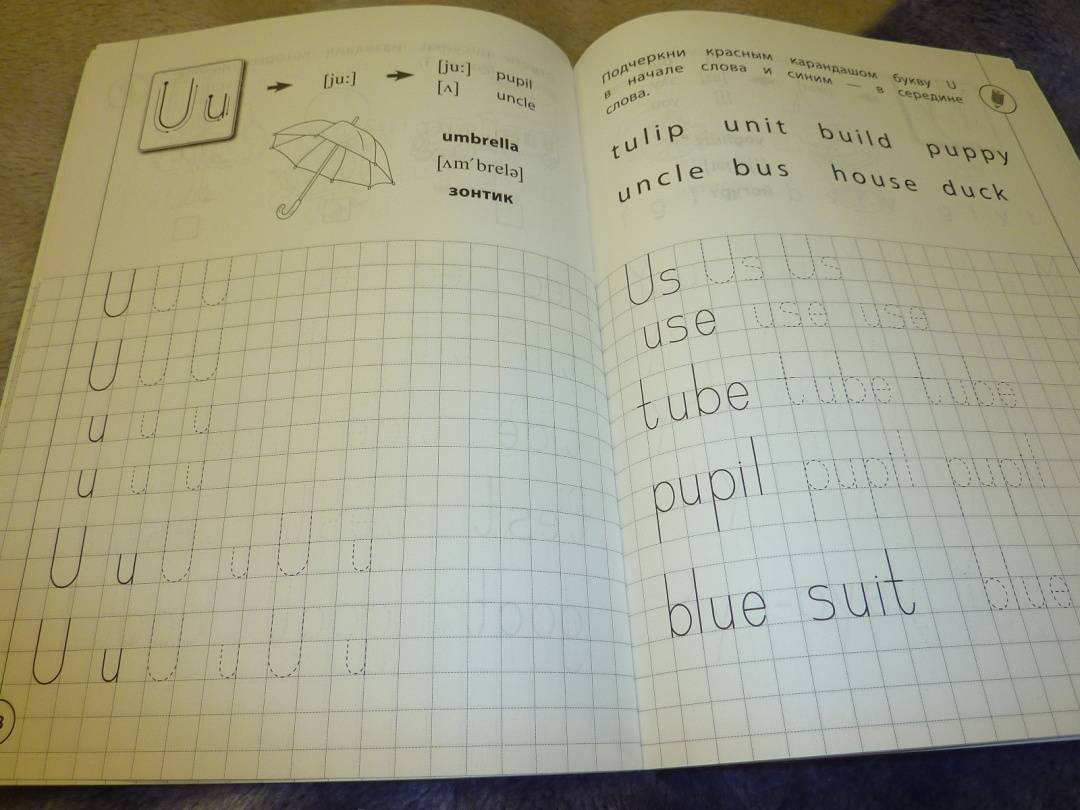 U u
[ju:]
[ju:] pupil
[ʌ] uncle
umbrella
[ʌm´brelə]
зонтик
U U U
U U U
u u u
u u u
U u U u U u
U u U u U u
Подчеркни красным карандашом букву U
в начале слова и синим — в середине
слова.
tulip unit build puppy
uncle bus house duck
Us Us Us
use use use
tube tube tube
pupil pupil pupil
blue suit blue